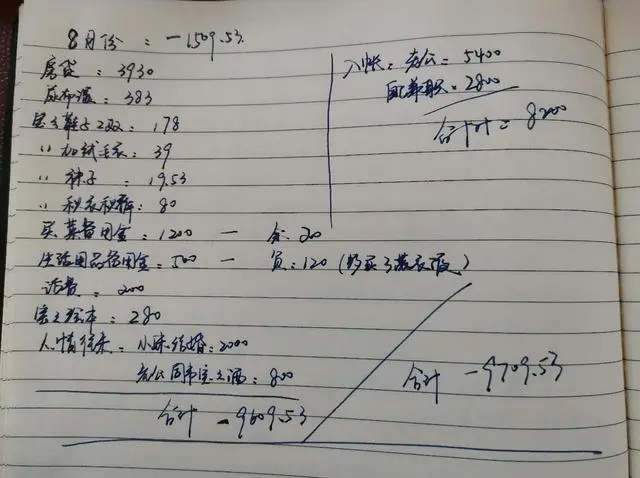 8月份：-1509.53
房贷：3930
：383
鞋子2双：178
〃 加绒毛衣：39
〃 袜子：19.53
〃 秋衣秋裤：80
买菜备用金：1200 — 余：20
生活用品备用金：500 — 负：120（买了衣服）
话费：200
绘本：280
人情往来：小妹结婚：2000
老公同事宝之酒：800
合计 -9609.53
入帐：老公：5400
兼职：2800
合计：8200
合计 -9709.53